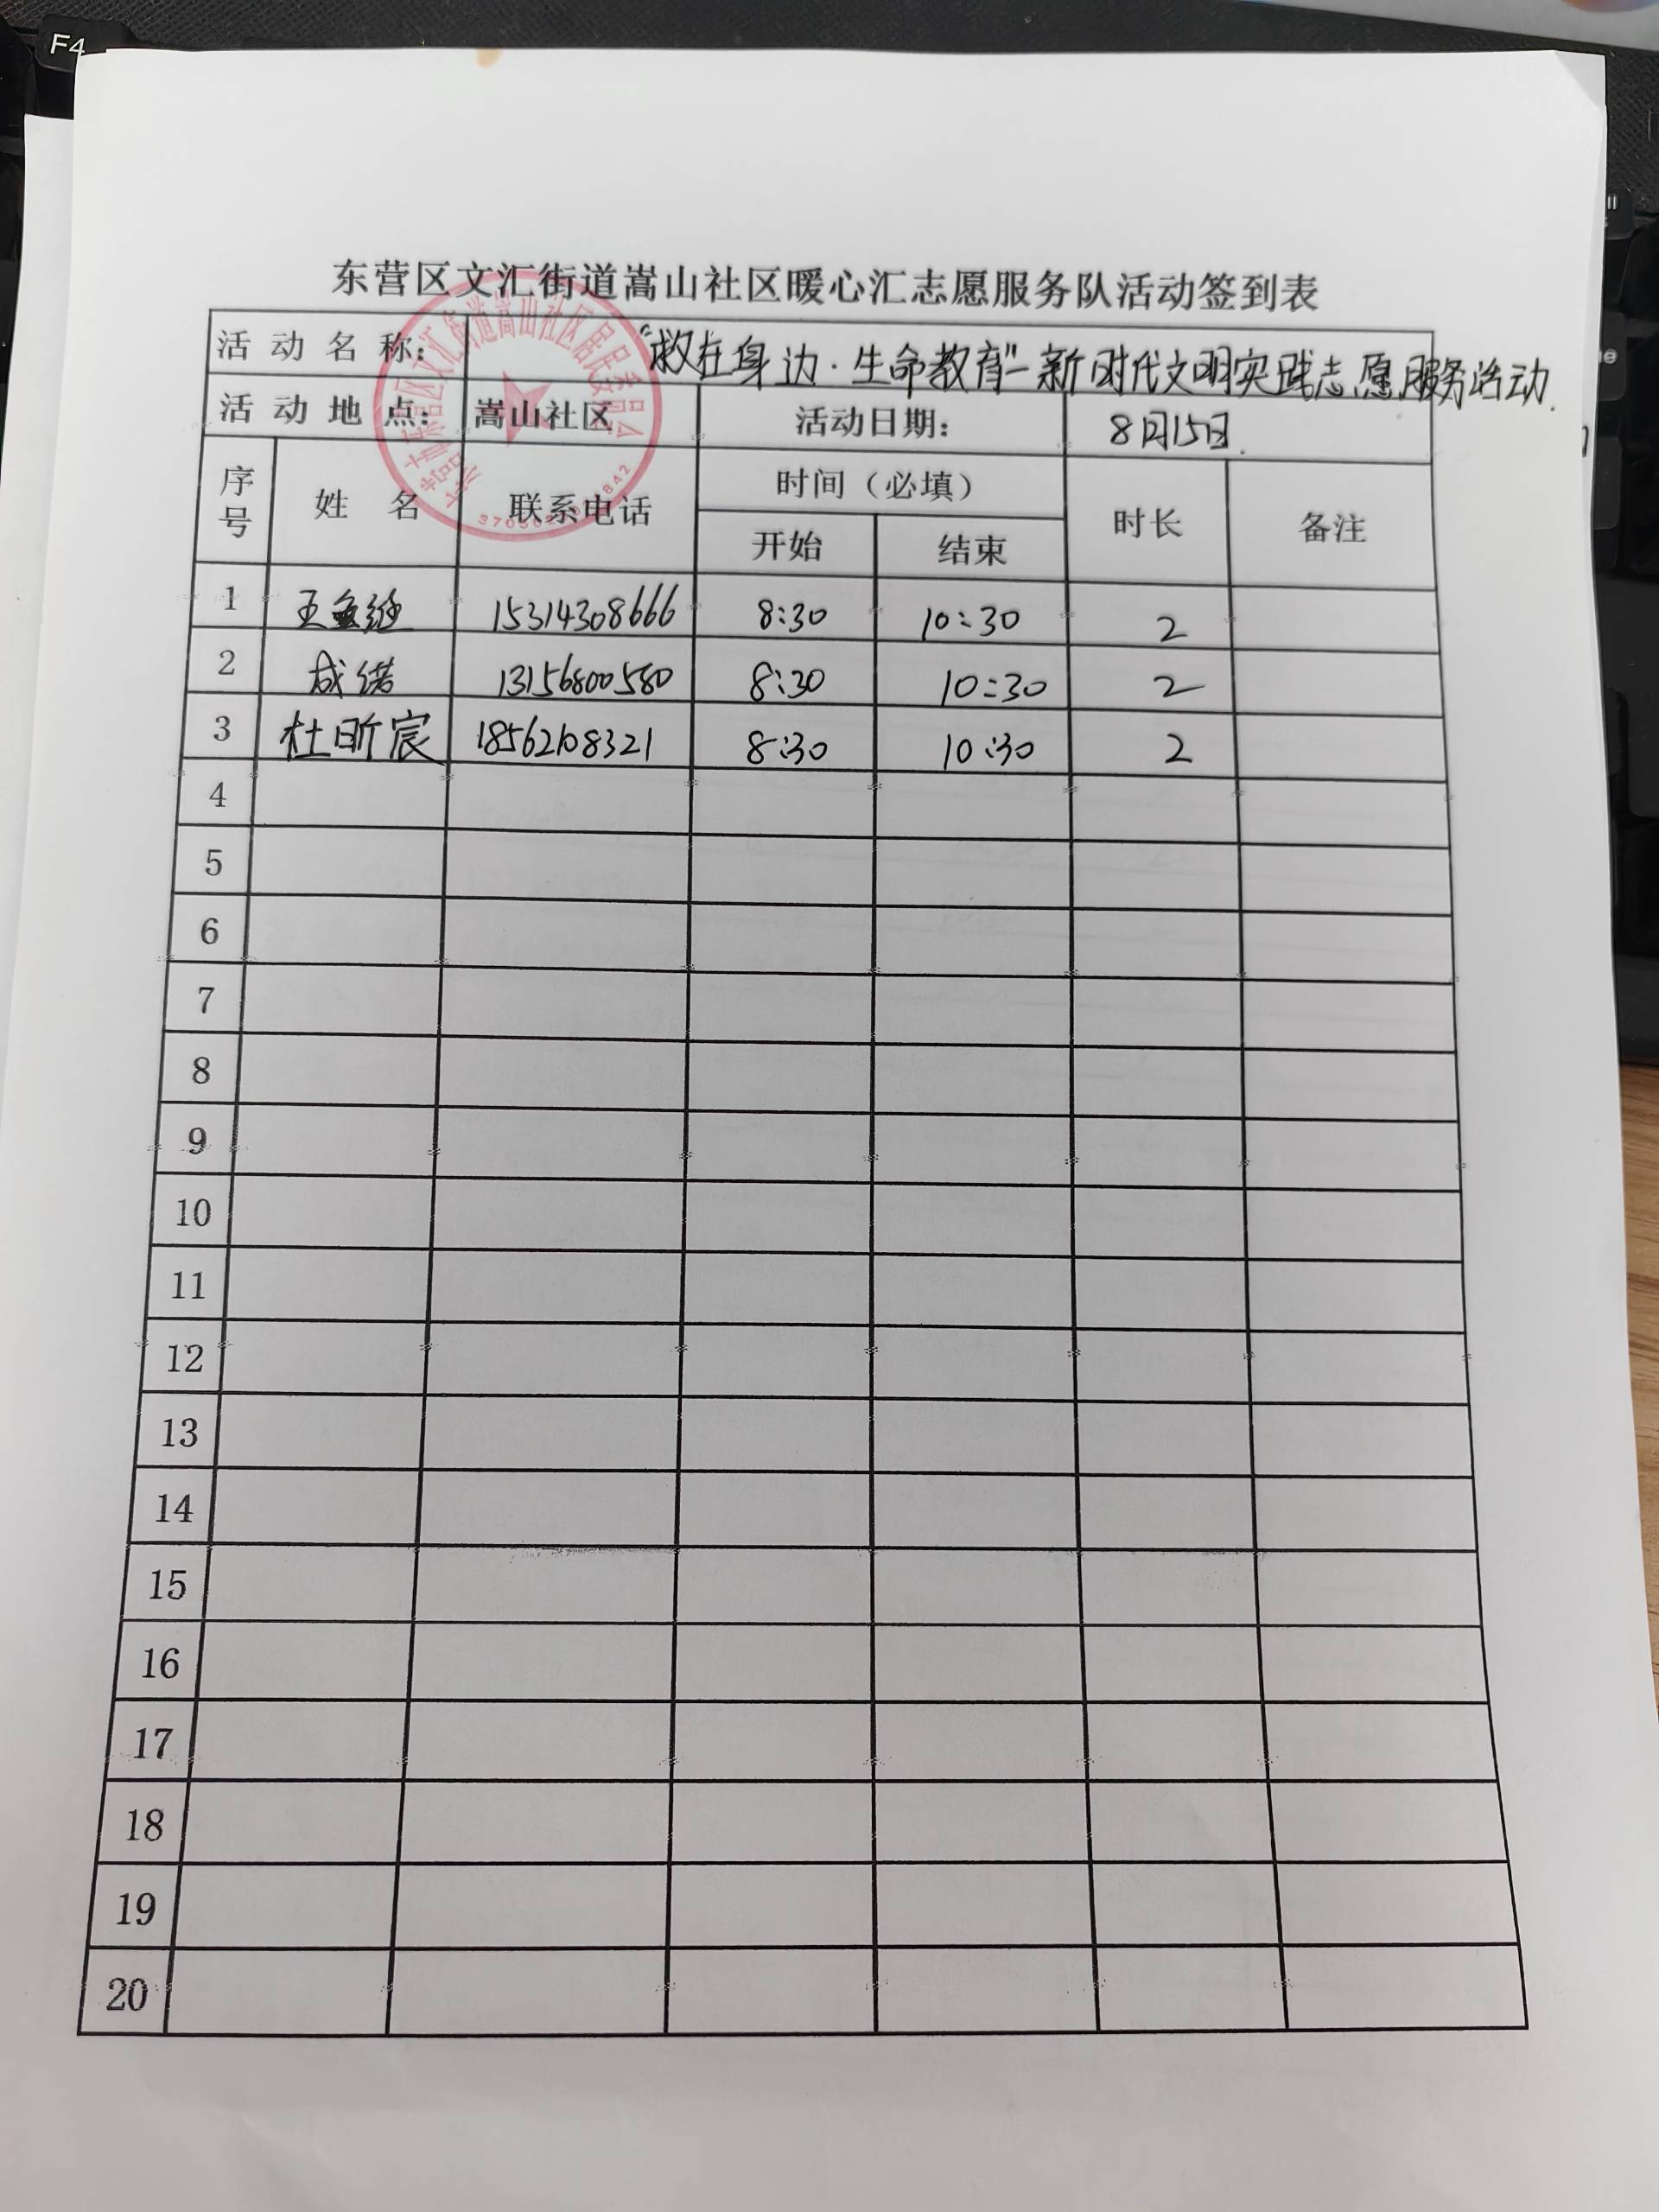 F4
东营区文汇街道嵩山社区暖心汇志愿服务队活动签到表
活动名称： "救在身边·生命教育"-新时代文明实践志愿服务活动.
活动地点： 嵩山社区 活动日期： 8月15日.
序号 姓名 联系电话 时间（必填） 时长 备注
开始 结束
1 王 15314308666 8:30 10:30 2
2 成 13156800580 8:30 10:30 2
3 杜昕宸 18562108321 8:30 10:30 2
4
5
6
7
8
9
10
11
12
13
14
15
16
17
18
19
20